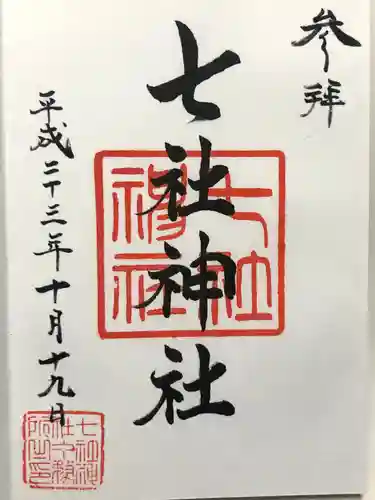 参拝
七社神社
七社神社
平成二十三年十月十九日
七社神社社務所之印